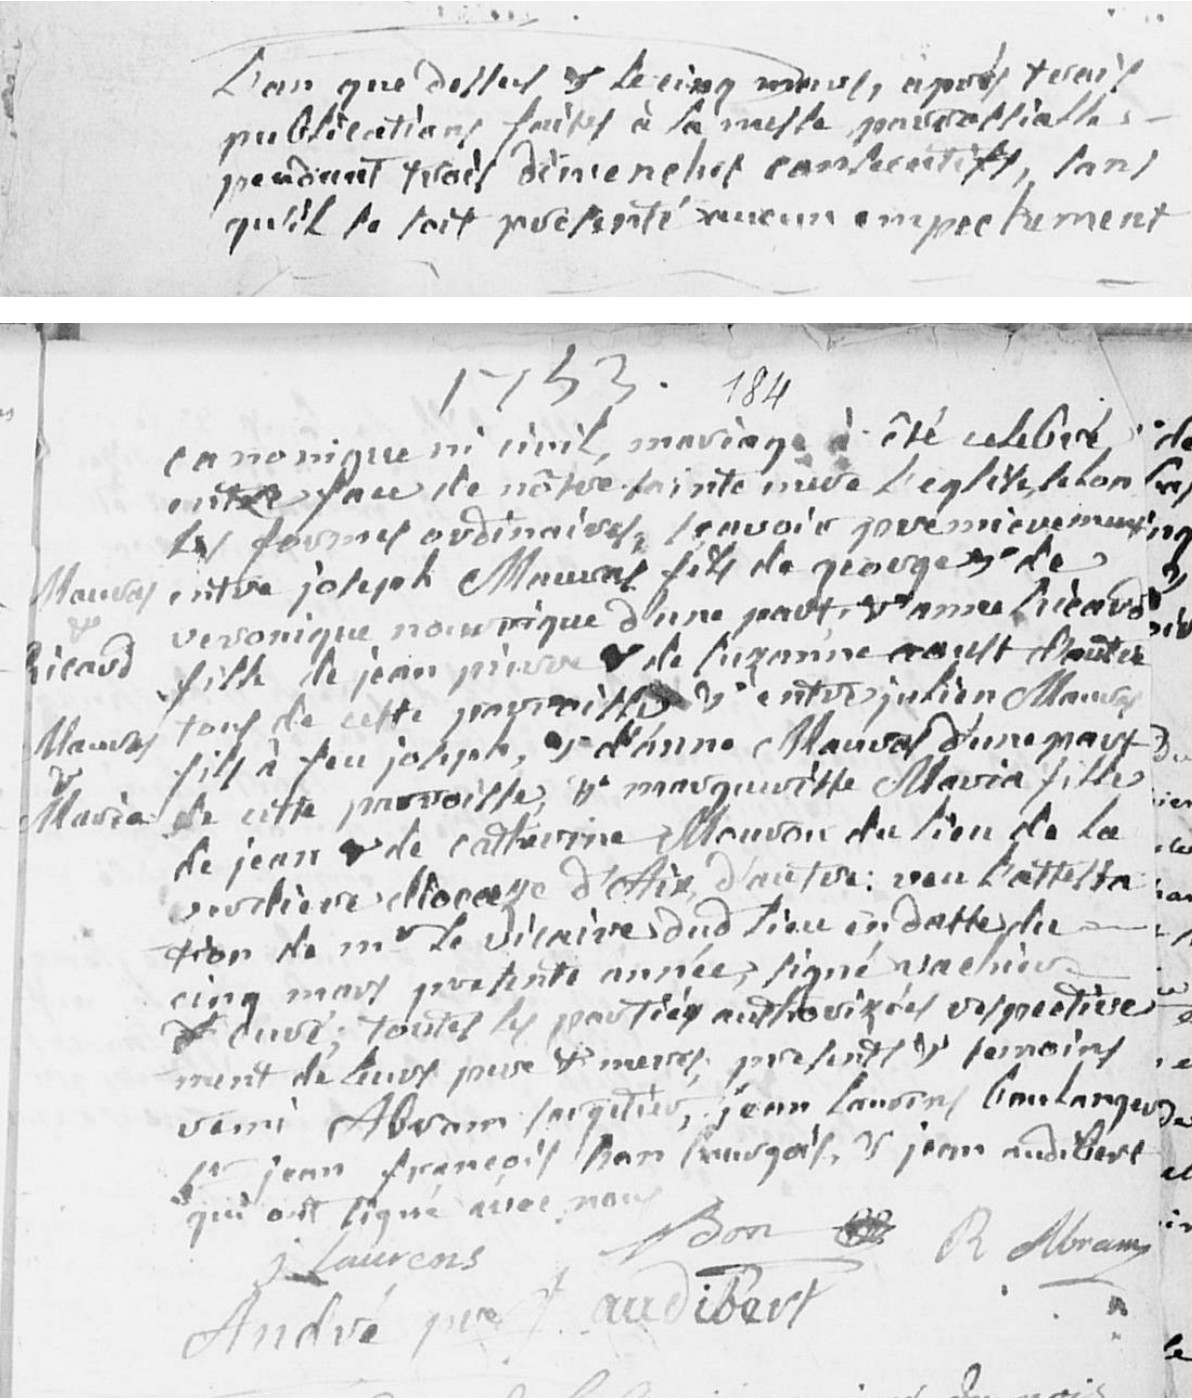 L'an que dessus & le cinq mars, après trois
publications faites à la messe parroissialle
pendant trois dimenches consecutifs, sans
qu'il se soit presenté aucun empechement
1753. 184
canonique ni civil, mariage à été celebré
en face de nôtre sainte mere L'eglise, selon
les formes ordinaires, sçavoir premierement
Mauras entre joseph Mauras fils de george & de
&
veronique d'une part, & anne Ricard
Ricard
fille de jean pierre & de suzanne d'autre
tous de cette parroisse & entre julien Mauras
Mauras
fils à feu joseph, & d'anne Mauras d'une part
&
de cette parroisse, & margueritte Maria fille
Maria
de jean & de catherine Mouron du lieu de la
verdiere diocese d'Aix, d'autre: veu l'attesta
tion de mr le vicaire dud lieu en datte du
cinq mars presente année, signé
curé; toutes les parties authorizées respective
ment de leurs pere & meres, presents & temoins
remi Abram, jean laurens boulanger
sr jean françois bon bourgois, & jean audibert
qui ont signé avec nous
j Laurens Bon R Abram
André pre j audibert